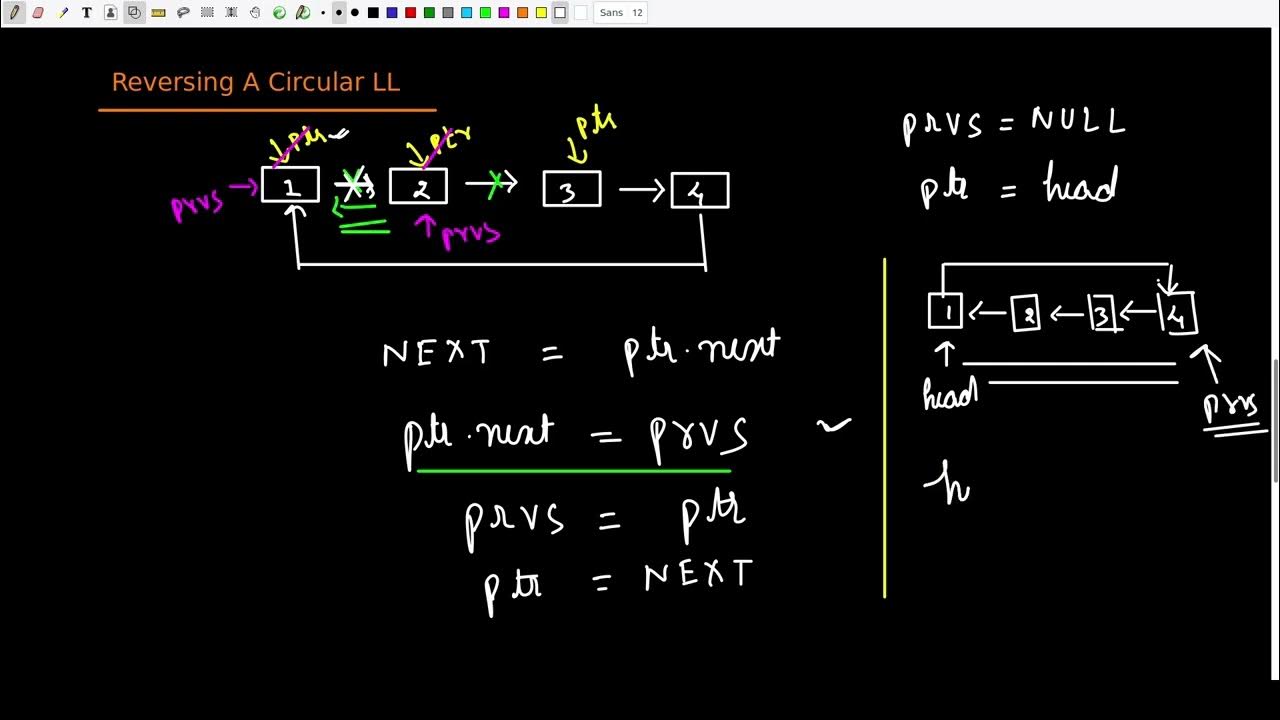 T
Sans 12
Reversing A Circular LL
ptr ptr ptr
prvs 1 2 3 4
prvs
prvs = NULL
ptr = head
1 2 3 4
head
prvs
h
NEXT = ptr.next
ptr.next = prvs
prvs = ptr
ptr = NEXT